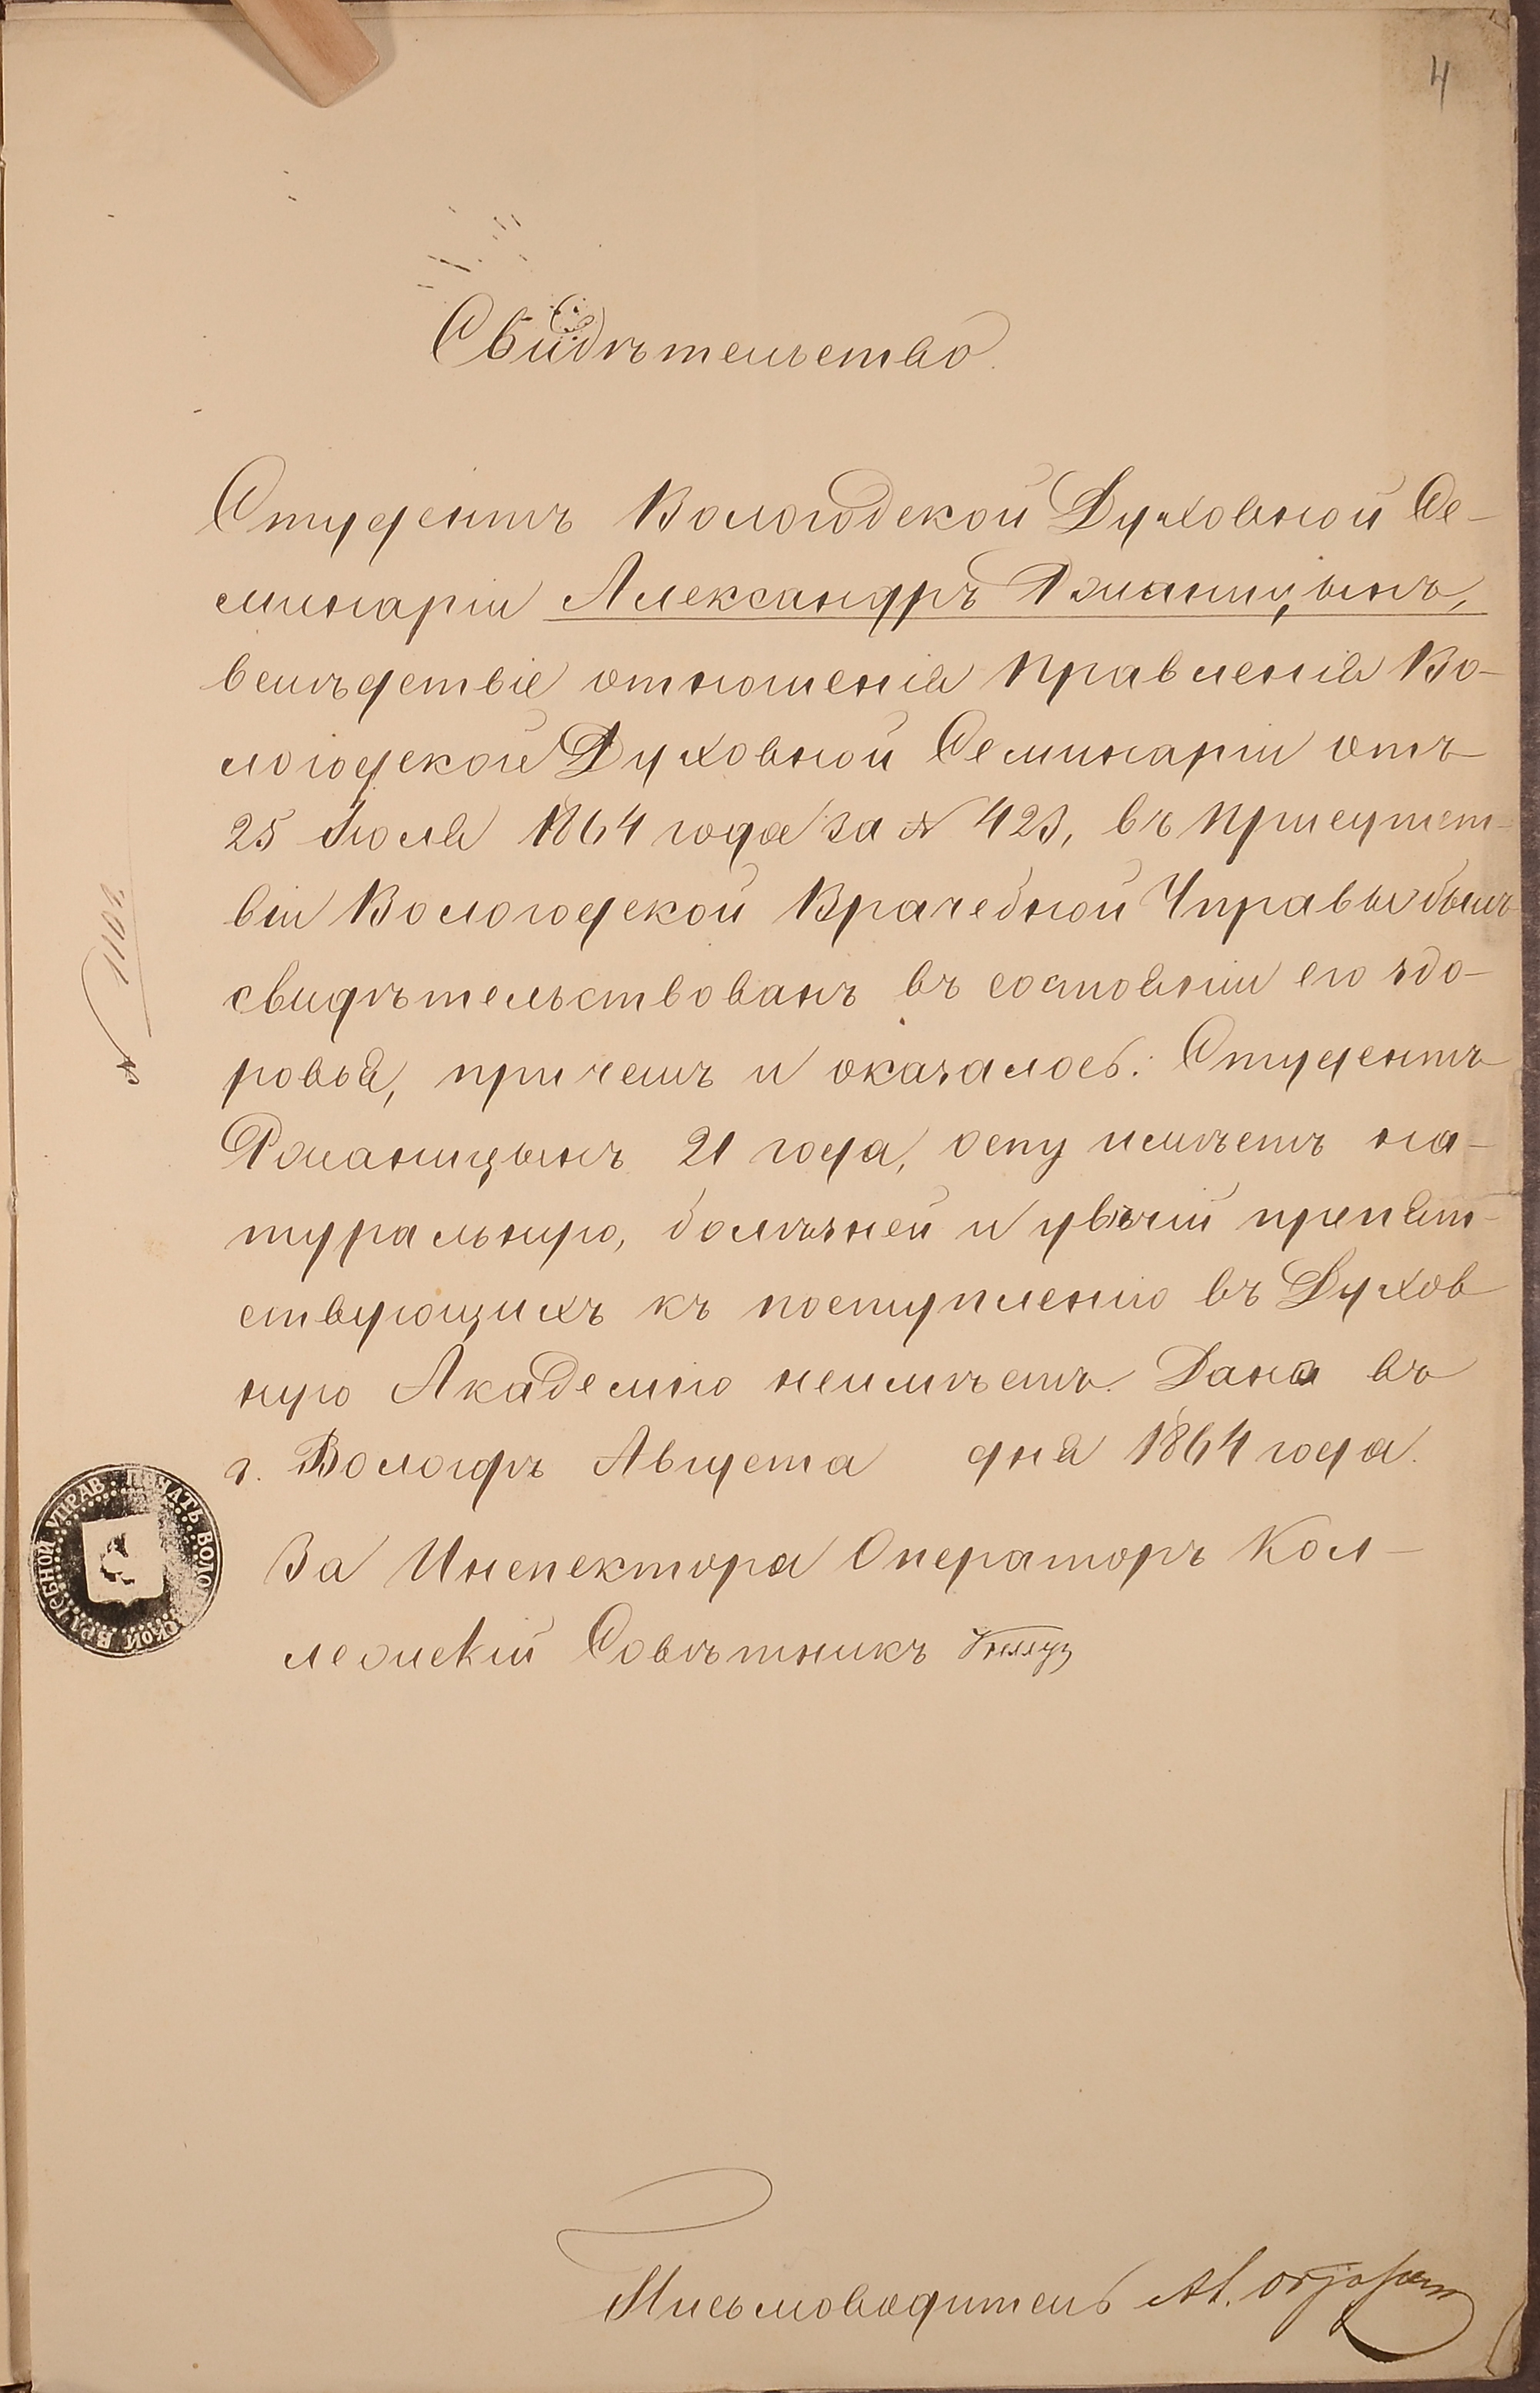 4
Свидѣтельство.
Студентъ Вологодской Духовной Се-
минаріи Александръ Романицынъ,
вслѣдствіе отношенія Правленія Во-
логодской Духовной Семинаріи отъ
25 Іюля 1864 года за № 423, въ присутст-
віи Вологодской Врачебной Управы былъ
свидѣтельствованъ въ состояніи его здо-
ровья, причемъ и оказалось: Студентъ
Романицынъ 21 года, оспу имѣетъ на-
туральную, болѣзней и увѣчій препят-
ствующихъ къ поступленію въ Духов
ную Академію неимѣетъ. Дано въ
г. Вологдѣ Августа дня 1864 года.
За Инспектора Операторъ Кол-
лежскій Совѣтникъ
Письмоводитель
№ 1102
ПЕЧАТЬ ВОЛОГОДСКОЙ ВРАЧЕБНОЙ УПРАВ